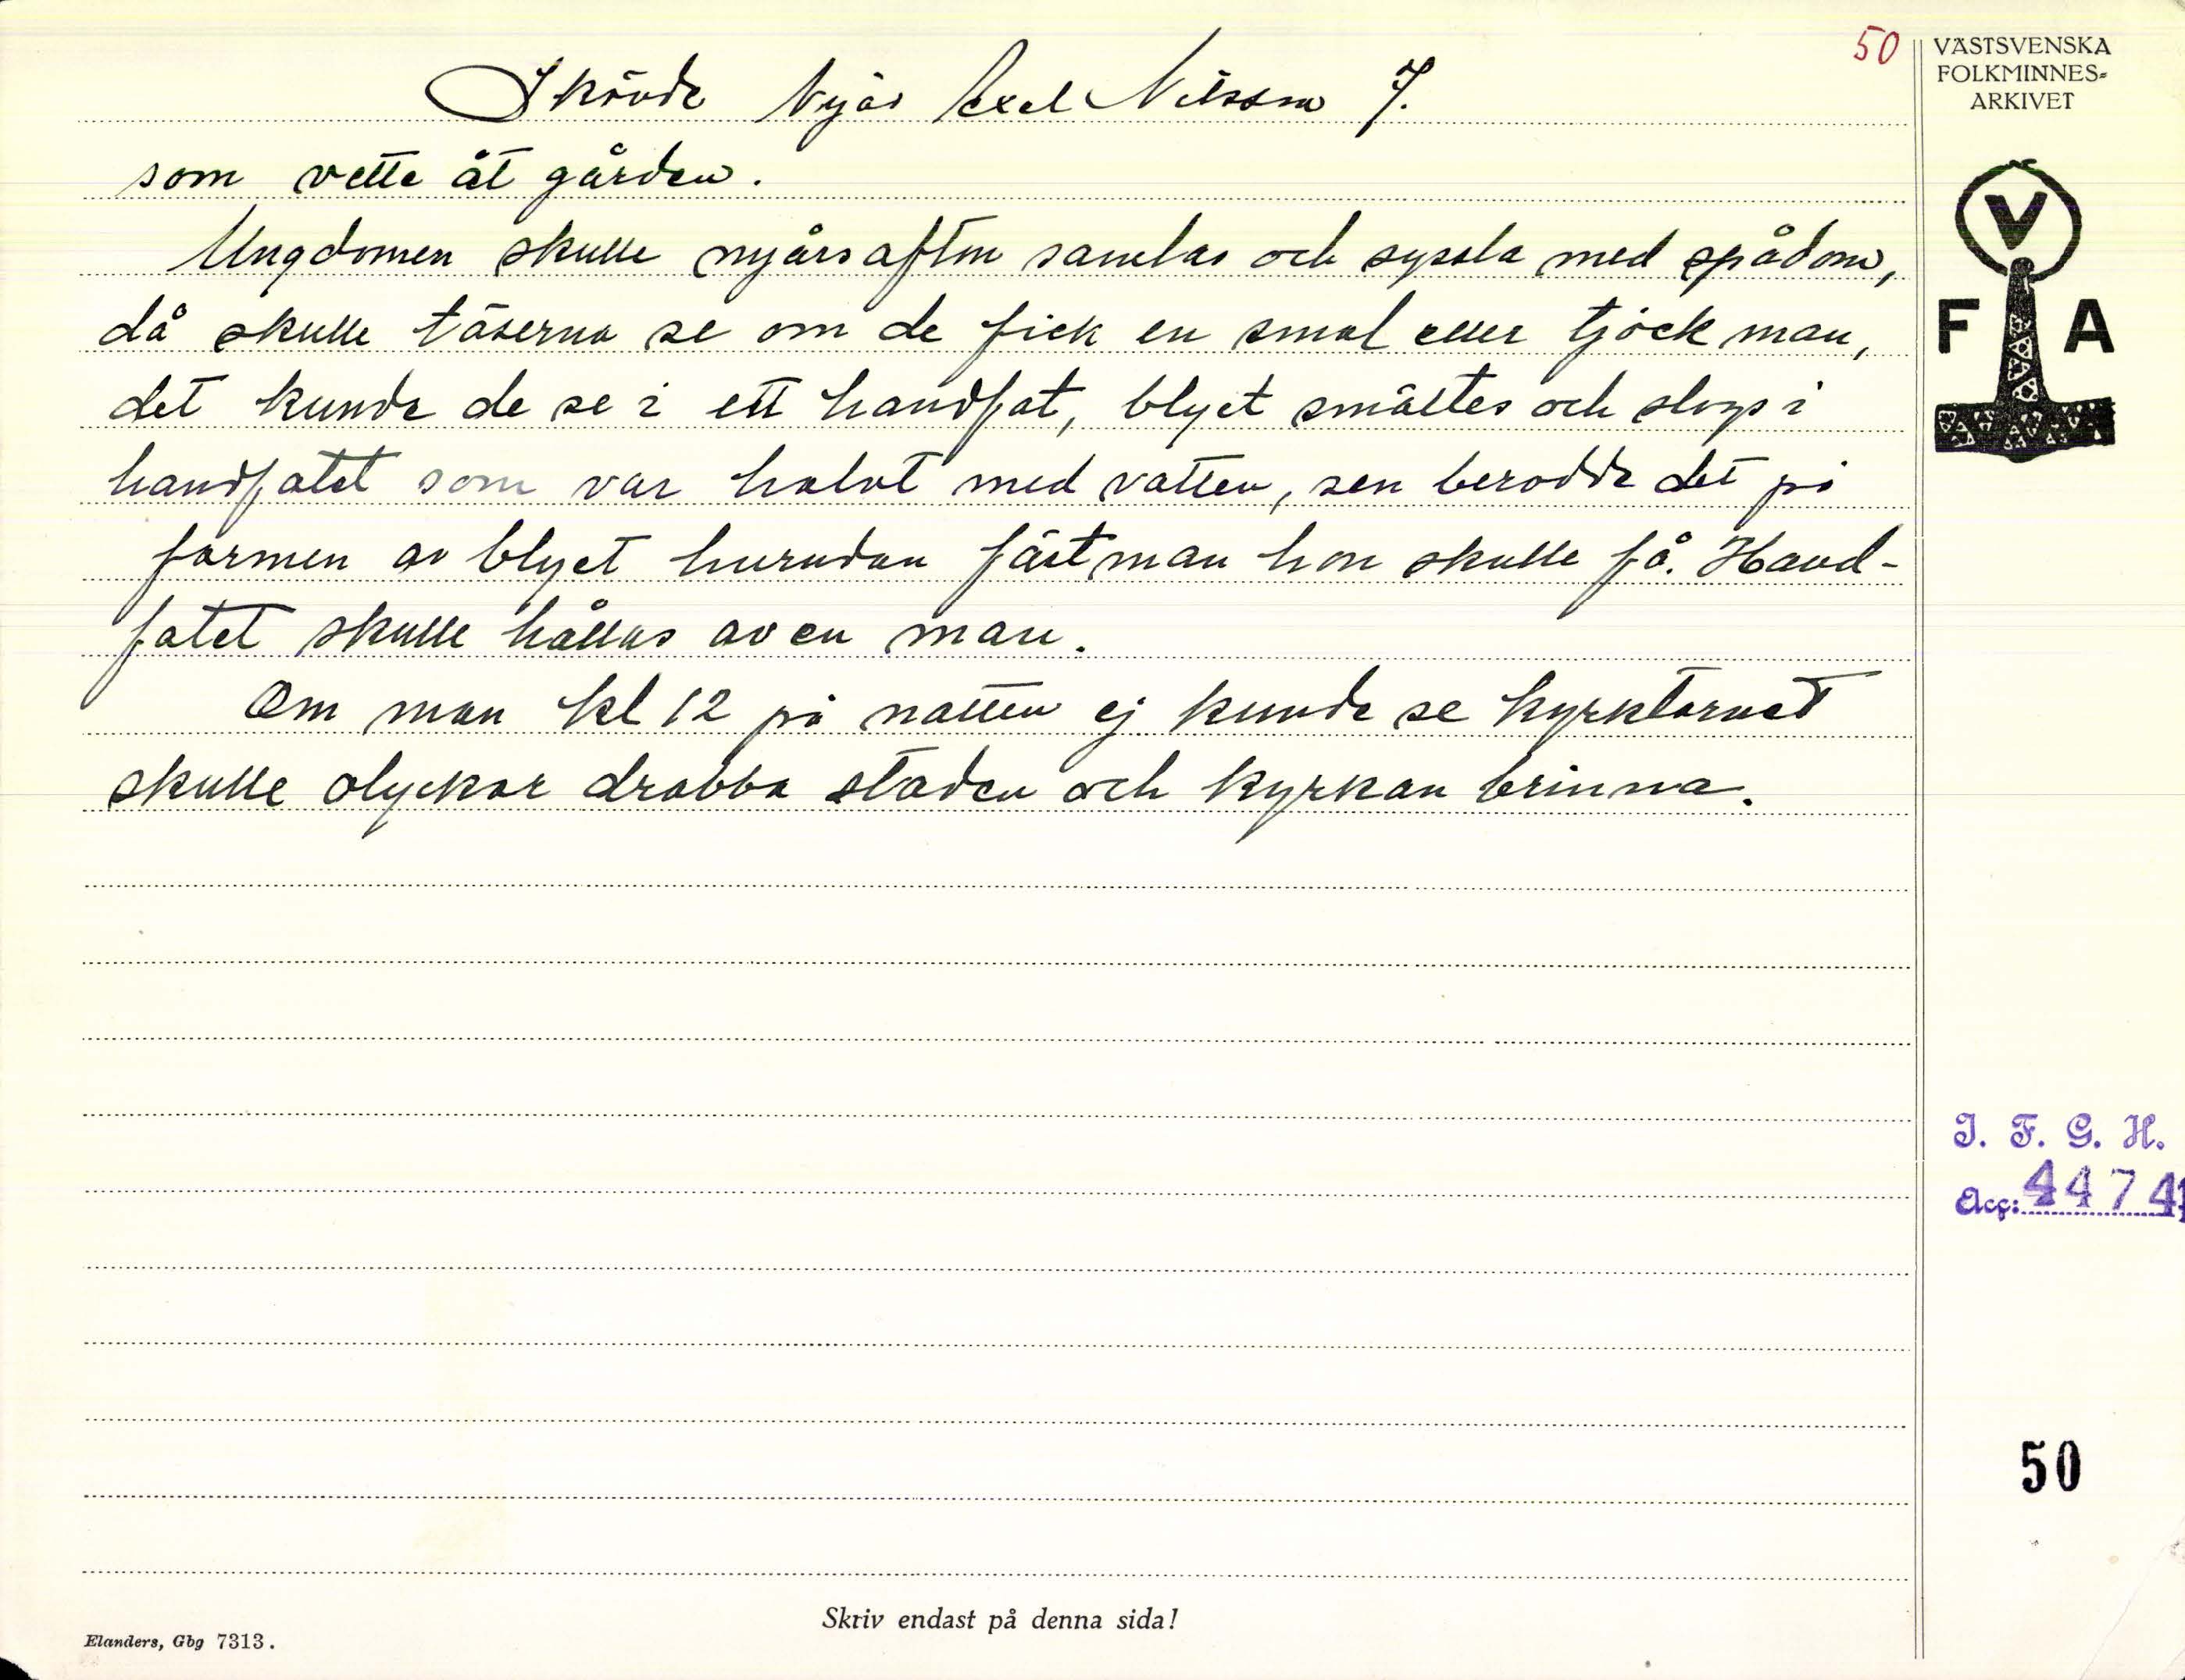 50
VÄSTSVENSKA
FOLKMINNES=
ARKIVET
Skövde Nyår Axel Nilsson 7.
som vette åt gården.
Ungdomen skulle nyårsafton samlas och syssla med spådom,
då skulle täserna se om de fick en smal eller tjock man,
det kunde de se i ett handfat, blyet smältes och slogs i
handfatet som var halvt med vatten, sen berodde det på
formen av blyet hurudan fästman hon skulle få. Hand-
fatet skulle hållas av en man.
Om man kl 12 på natten ej kunde se kyrktornet
skulle olyckor drabba staden och kyrkan brinna.
V
F A
I. F. G. H.
Acc: 4474
50
Skriv endast på denna sida!
Elanders, Gbg 7313.